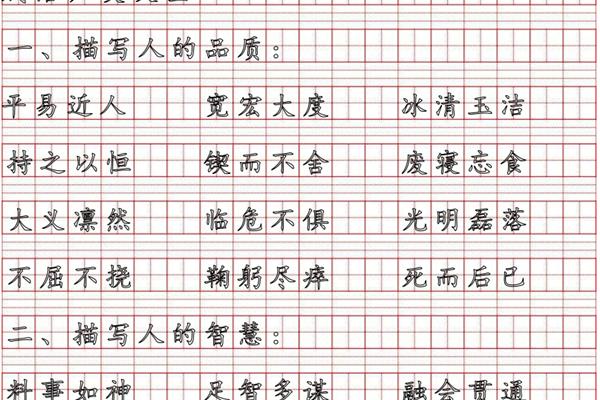 一、描写人的品质：
平易近人 宽宏大度 冰清玉洁
持之以恒 锲而不舍 废寝忘食
大义凛然 临危不俱 光明磊落
不屈不挠 鞠躬尽瘁 死而后已
二、描写人的智慧：
料事如神 足智多谋 融会贯通